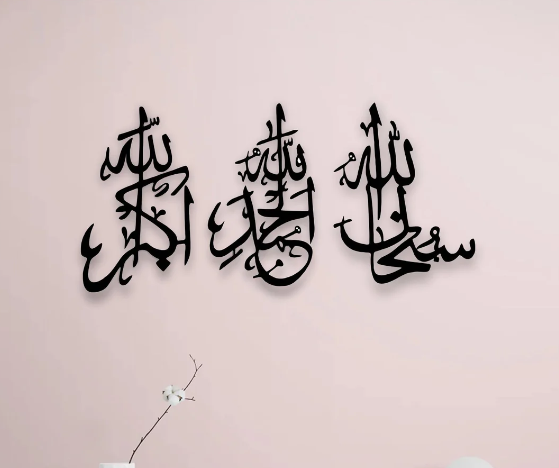 سبحان الله الحمد لله الله أكبر